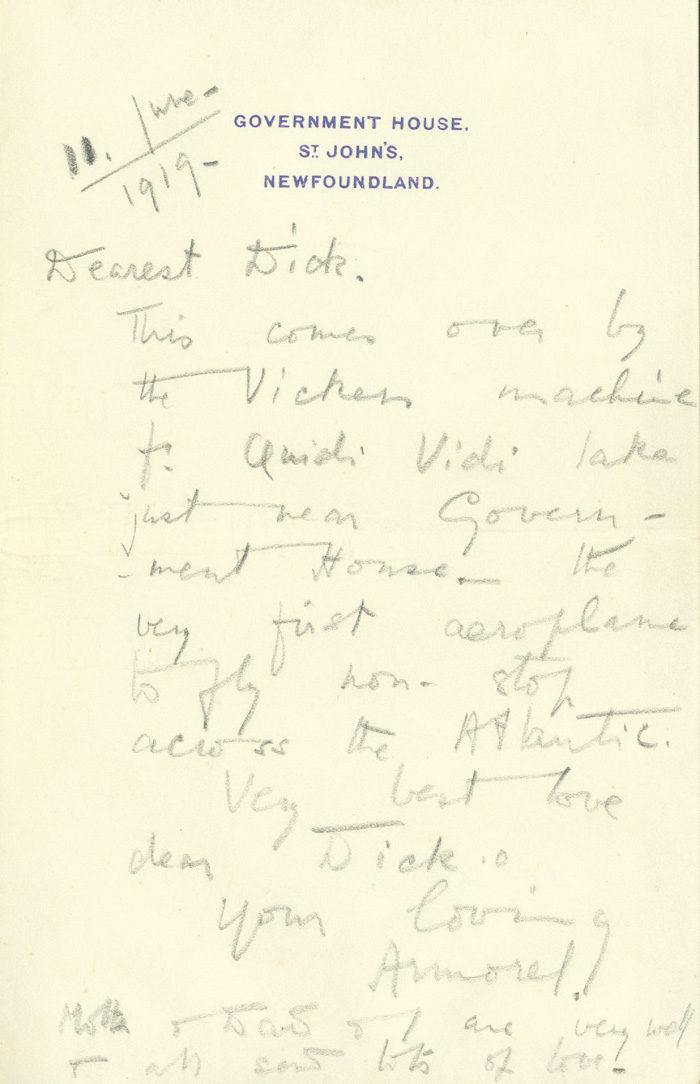 11. June -
1919 -
GOVERNMENT HOUSE,
ST. JOHN'S,
NEWFOUNDLAND.
Dearest Dick.
This comes over by
the Vickers machine
fr. Quidi Vidi lake
just near Govern -
- ment House - the
very first aeroplane
to fly non - stop
across the Atlantic.
Very best love
dear Dick.
Your loving
Armorel.
Mother & Dad & I are very well
& all send lots of love -